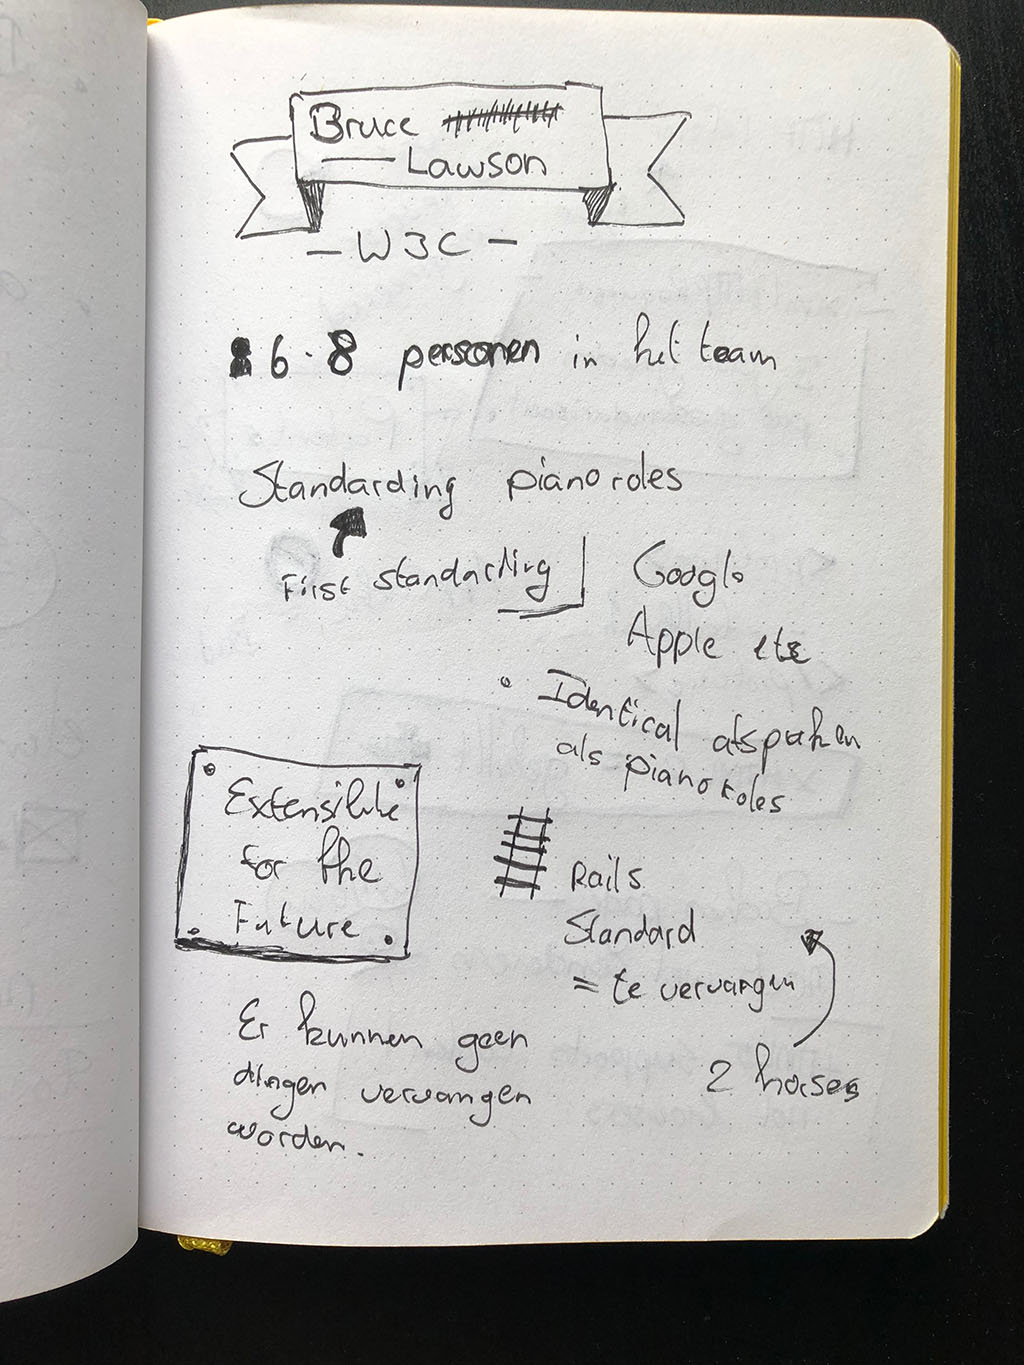 Bruce
Lawson
- W3C -
6 - 8 personen in het team
Standarding pianoroles
First standarding
Google
Apple etc
• Identical afspraken
als pianoroles
Extensible
for the
Future
Rails
Standard
= te vervangen
2 horses
Er kunnen geen
dingen vervangen
worden.